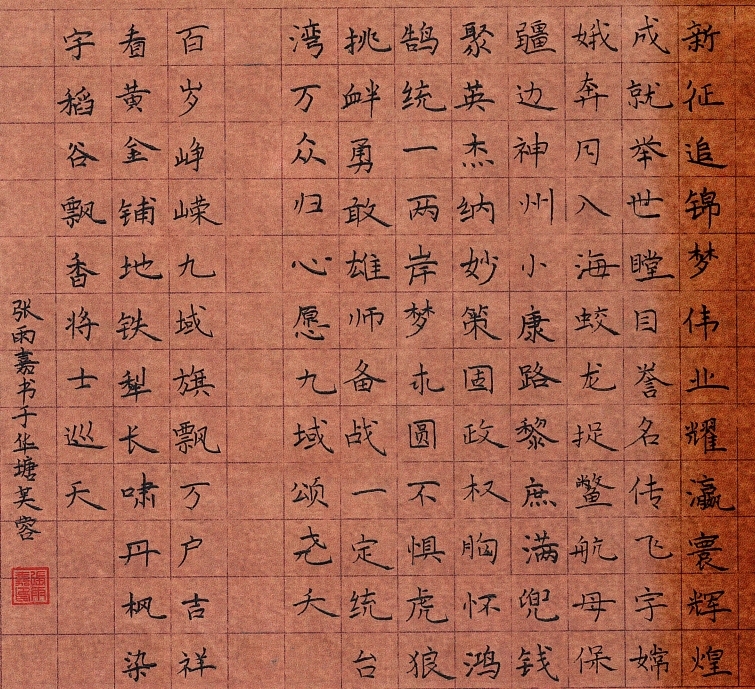 新征追锦梦伟业耀瀛寰辉煌
成就举世瞠目誉名传飞宇嫦
娥奔月入海蛟龙捉鳖航母保
疆边神州小康路黎庶满兜钱
聚英杰纳妙策固政权胸怀鸿
鹄统一两岸梦求圆不惧虎狼
挑衅勇敢雄师备战一定统台
湾万众归心愿九域颂尧天
百岁峥嵘九域旗飘万户吉祥
看黄金铺地铁犁长啸丹枫染
宇稻谷飘香将士巡天
张雨嘉书于华塘芙蓉